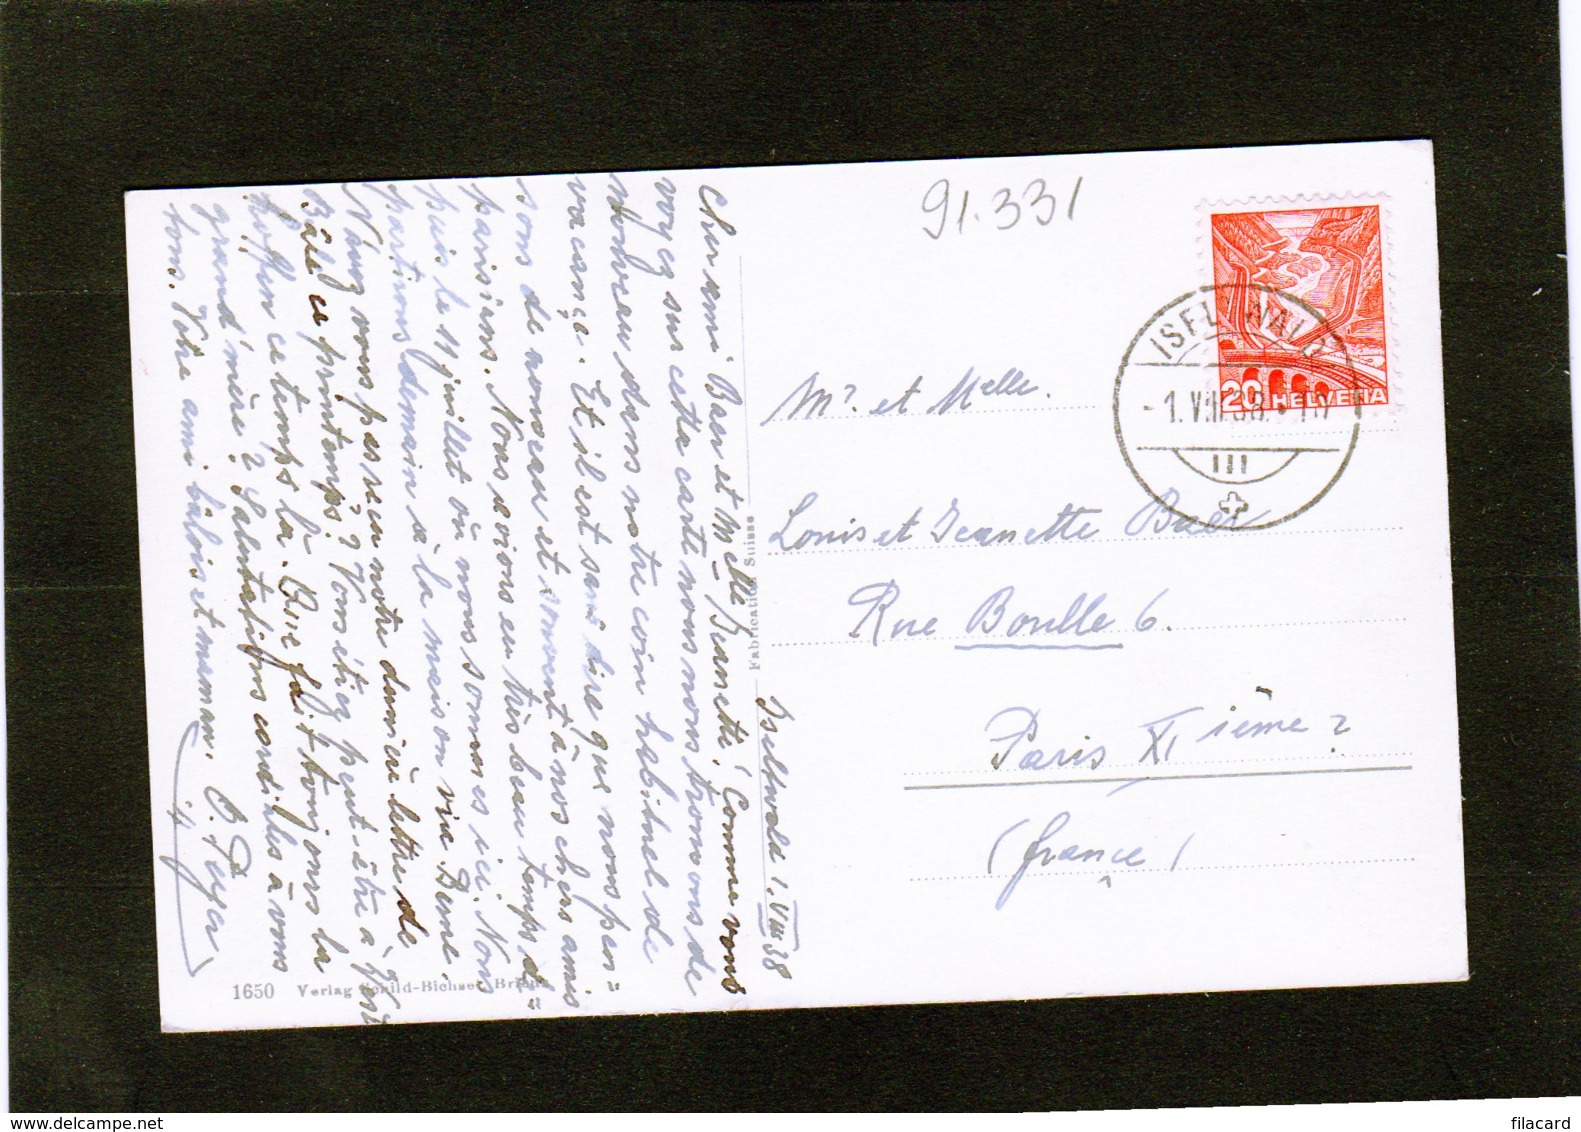 91.331
ISELTWALD
-1.VIII.38.-10
III
20 HELVETIA
Iseltwald 1.VIII 38
Cher ami Baer et Melle Jeannette! Comme vous
voyez sur cette carte nous nous trouvons de
nouveau dans notre coin habituel de
vacance. Et il est sans dire que nous pen=
sons de nouveau et souvent à nos chers amis
parisiens. Nous avions eu très beau temps de=
puis le 11 juillet où nous sommes ici. Nous
partirons demain à la maison via Berne.
N'avez vous pas reçu notre dernière lettre de
Bâle ce printemps? Vous étiez peut-être à
ce temps là. Que fait toujours la
grand'mère? Salutations cordiales à vous
tous. Votre ami bâlois et maman.
Mr. et Melle.
Louis et Jeanette Baer
Rue Boulle 6.
Paris XI ième?
(France)
Fabrication Suisse
1650 Verlag Schild-Bichsel, Brienz
www.delcampe.net
filacard